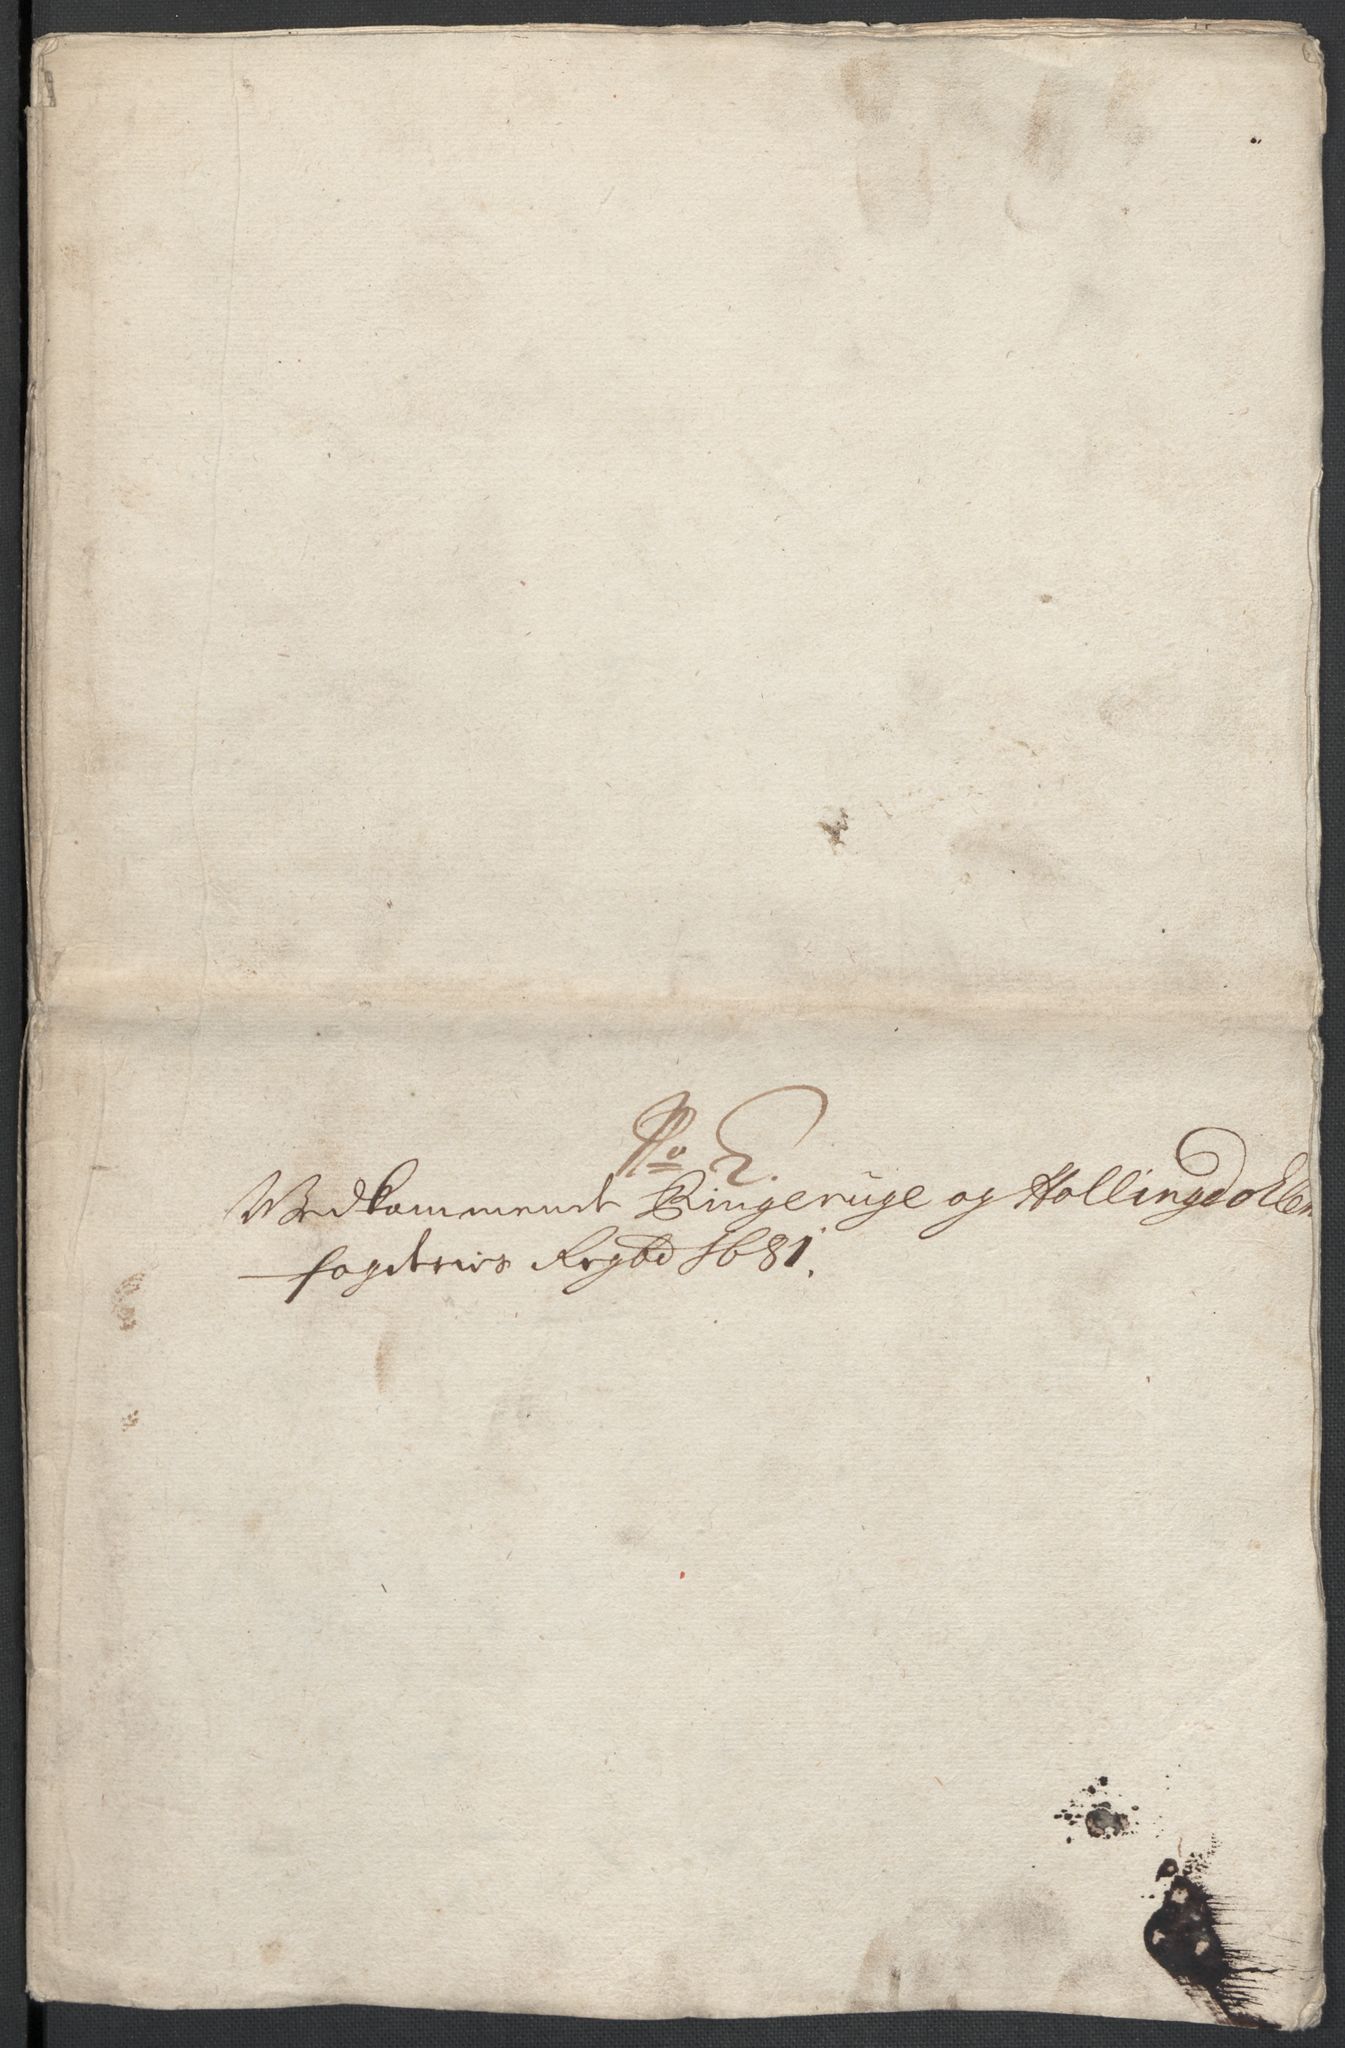 No 2.
Vedkommende Ringeruge og Hallingdallens
fogderies Regbd 1681.